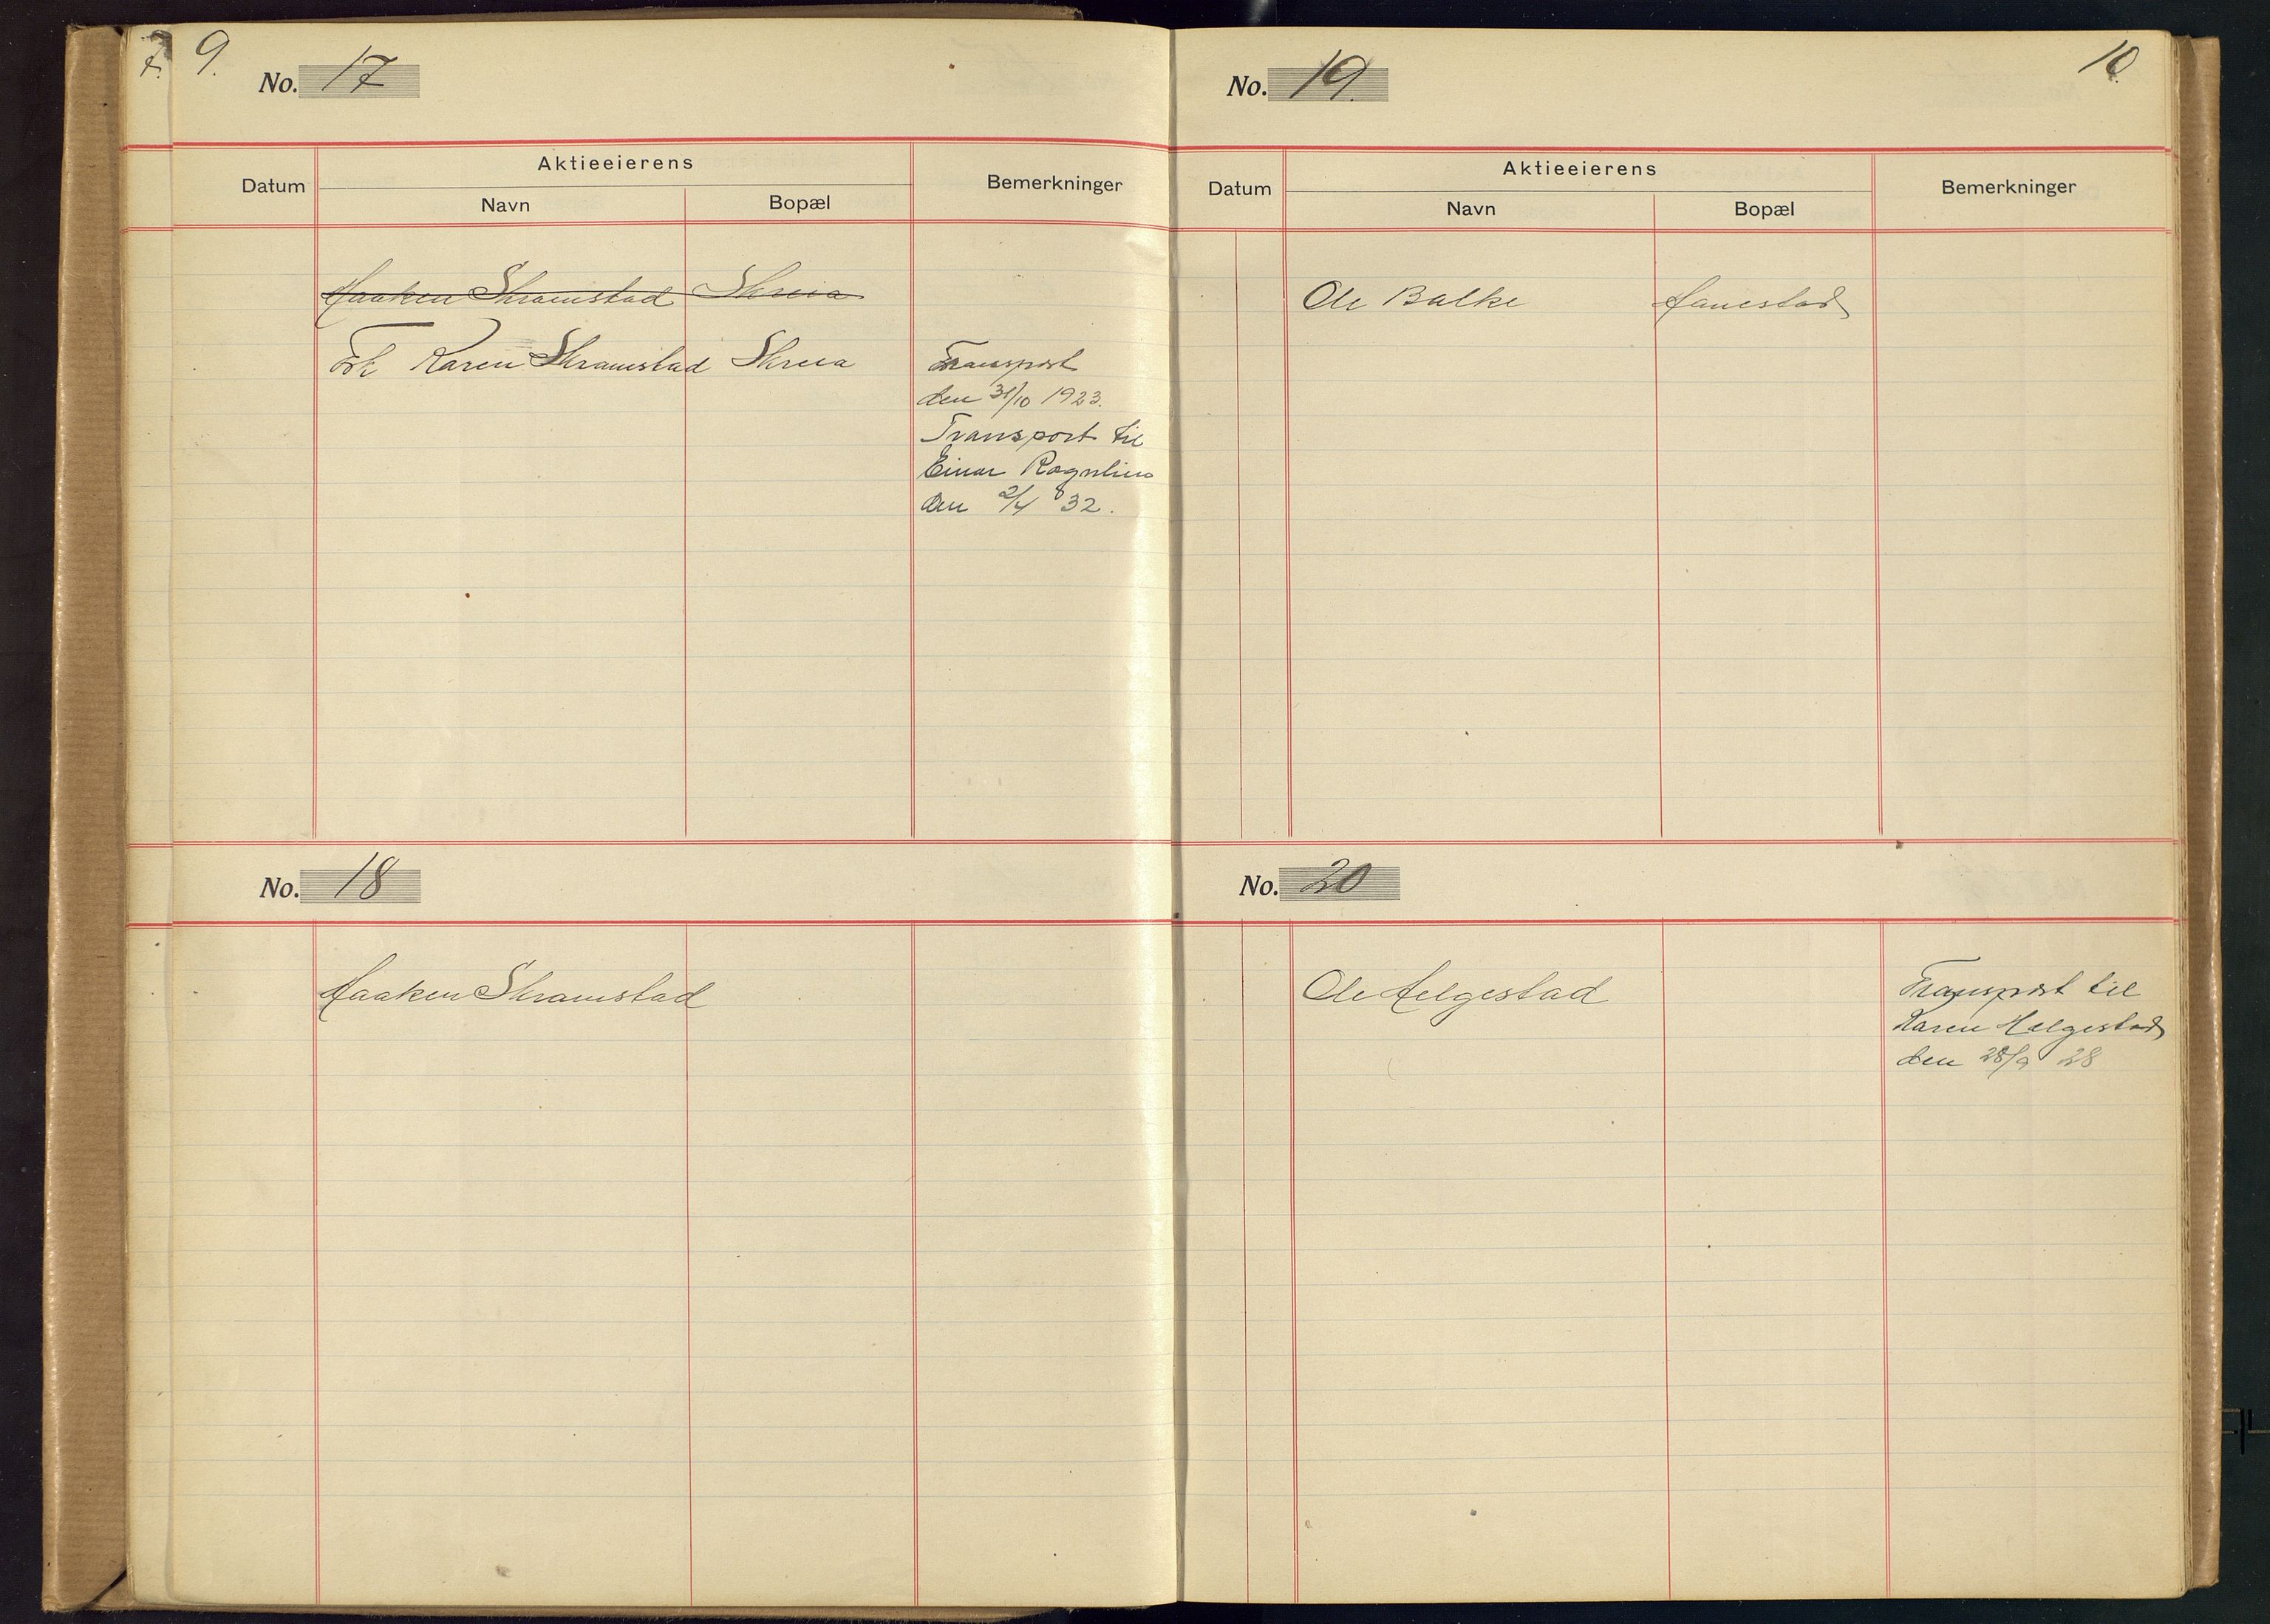 7. 9.
No. 17
Aktieeierens
Datum Navn Bopæl Bemerkninger
Haaken Skramstad Skreia
Frk Karen Skramstad Skreia Transport
den 31/10 1923.
Transport til
Einar Rognlien
den 2/4 32.
No. 18
Haaken Skramstad
10
No. 19.
Aktieeierens
Datum Navn Bopæl Bemerkninger
Ole Balke Hanestad
No. 20
Ole Helgestad Transport til
Karen Helgestad
den 28/9 28